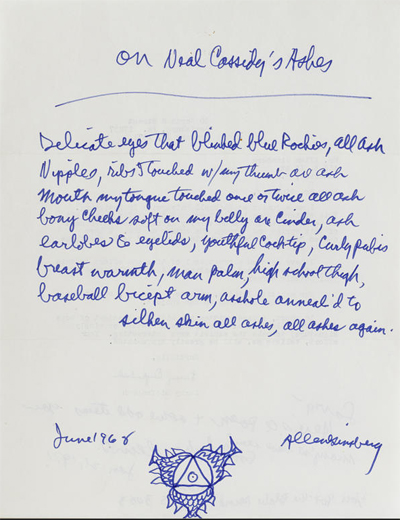 on Neal Cassidy's Ashes
Delicate eyes that blinked blue Rockies, all ash
Nipples, ribs I touched w/ my thumb are ash
Mouth my tongue touched once or twice all ash
bony cheeks soft on my belly are cinder, ash
earlobes & eyelids, youthful cocktip, curly pubis
breast warmth, man palm, high school thigh,
baseball bicept arm, asshole anneal'd to
silken skin all ashes, all ashes again.
June 1968
Allen Ginsberg